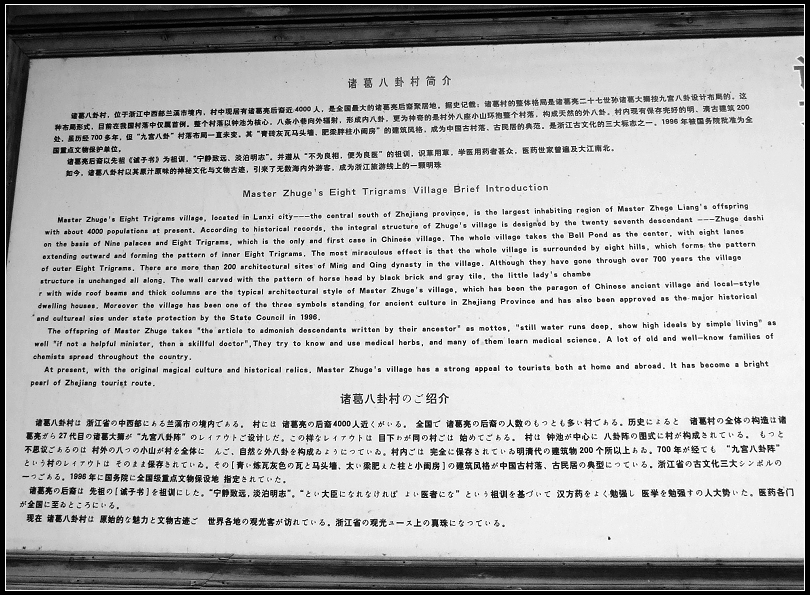 诸葛八卦村简介
诸葛八卦村，位于浙江中西部兰溪市境内，村中现居有诸葛亮后裔近4000人，是全国最大的诸葛亮后裔聚居地。据史记载：诸葛村的整体格局是诸葛亮二十七世孙诸葛大狮按九宫八卦设计布局的。这
种布局形式，目前在我国村落中仅属首例。整个村落以钟池为核心，八条小巷向外辐射，形成内八卦，更为神奇的是村外八座小山环抱整个村落，构成天然的外八卦。村内现有保存完好的明、清古建筑200
处，虽历经700多年，但“九宫八卦”村落布局一直未变。其“青砖灰瓦马头墙、肥梁胖柱小闺房”的建筑风格，成为中国古村落、古民居的典范，是浙江古文化的三大标志之一。1996年被国务院批准为全
国重点文物保护单位。
诸葛亮后裔以先祖《诫子书》为祖训，“宁静致远、淡泊明志”，并遵从“不为良相，便为良医”的祖训，识草用草，学医用药者甚众，医药世家曾遍及大江南北。
如今，诸葛八卦村以其原汁原味的神秘文化与文物古迹，引来了无数海内外游客，成为浙江旅游线上的一颗明珠
Master Zhuge's Eight Trigrams Village Brief Introduction
Master Zhuge's Eight Trigrams village, located in Lanxi city---the central south of Zhejiang province, is the largest inhabiting region of Master Zhege Liang's offspring
with about 4000 populations at present. According to historical records, the integral structure of Zhuge's village is designed by the twenty seventh descendant ---Zhuge dashi
on the basis of Nine palaces and Eight Trigrams, which is the only and first case in Chinese village. The whole village takes the Bell Pond as the center, with eight lanes
extending outward and forming the pattern of inner Eight Trigrams. The most miraculous effect is that the whole village is surrounded by eight hills, which forms the pattern
of outer Eight Trigrams. There are more than 200 architectural sites of Ming and Qing dynasty in the village. Although they have gone through over 700 years the village
structure is unchanged all along. The wall carved with the pattern of horse head by black brick and gray tile, the little lady's chambe
r with wide roof beams and thick columns are the typical architectural style of Master Zhuge's village, which has been the paragon of Chinese ancient village and local-style
dwelling houses. Moreover the village has been one of the three symbols standing for ancient culture in Zhejiang Province and has also been approved as the major historical
and cultureal sies under state protection by the State Council in 1996.
The offspring of Master Zhuge takes "the article to admonish descendants written by their ancestor" as mottos, "still water runs deep, show high ideals by simple living" as
well "if not a helpful minister, then a skillful doctor".They try to know and use medical herbs, and many of them learn medical science. A lot of old and well-know families of
chemists spread throughout the country.
At present, with the original magical culture and historical relics. Master Zhuge's village has a strong appeal to tourists both at home and abroad. It has become a bright
pearl of Zhejiang tourist route.
诸葛八卦村のご绍介
诸葛八卦村は 浙江省の中西部にある兰溪市の境内である。村には 诸葛亮の后裔4000人近くがいる。全国で 诸葛亮の后裔の人数のもつとも多い村である。历史によると 诸葛村の全体の构造は诸
葛亮から27代目の诸葛大狮が“九宫八卦阵”のレイアウトご设计しだ。この样なレイアウトは 目下わが同の村ごは 始めてである。村は 钟池が中心に 八卦阵の图式に村が构成されている。もつと
不思议であるのは 村外の八つの小山が村を全体に んご、自然な外八卦を构成ゐようにつている。村内ごは 完全に保存されている明清代の建筑物200个所以上ある。700年が经ても “九宫八卦阵”
という村のレイアウトは そのまま保存されている。その[青い炼瓦灰色の瓦と马头墙、太い梁肥えた柱と小闺房]の建筑风格が中国古村落、古民居の典型につている。浙江省の古文化三大シンボルの
一つである。1996年に国务院に全国级重点文物保设地 指定されていた。
诸葛亮の后裔は 先祖の[诫子书]を祖训にした。“宁静致远，淡泊明志”。“とい大臣になれなければ よい医者にな”という祖训を基づいて 汉方药をよく勉强し 医学を勉强すの人大势いた。医药各门
が全国に至ゐところにいる。
现在 诸葛八卦村は 原始的な魅力と文物古迹ご 世界各地の观光客が访れている。浙江省の观光ユース上の真珠になつている。